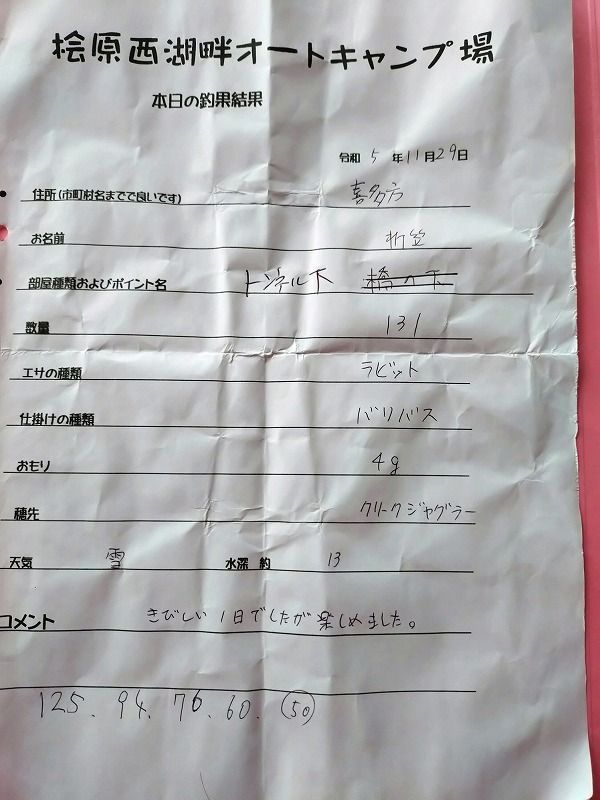 桧原西湖畔オートキャンプ場
本日の釣果結果
令和 5 年 11 月 29 日
住所(市町村名までで良いです) 喜多方
お名前 折笠
部屋種類およびポイント名 トンネル下 橋の下
数量 131
エサの種類 ラビット
仕掛けの種類 バリバス
おもり 4g
穂先 クリークジャグラー
天気 雪 水深 約 13
コメント きびしい1日でしたが楽しめました。
125. 94. 76. 60. 50